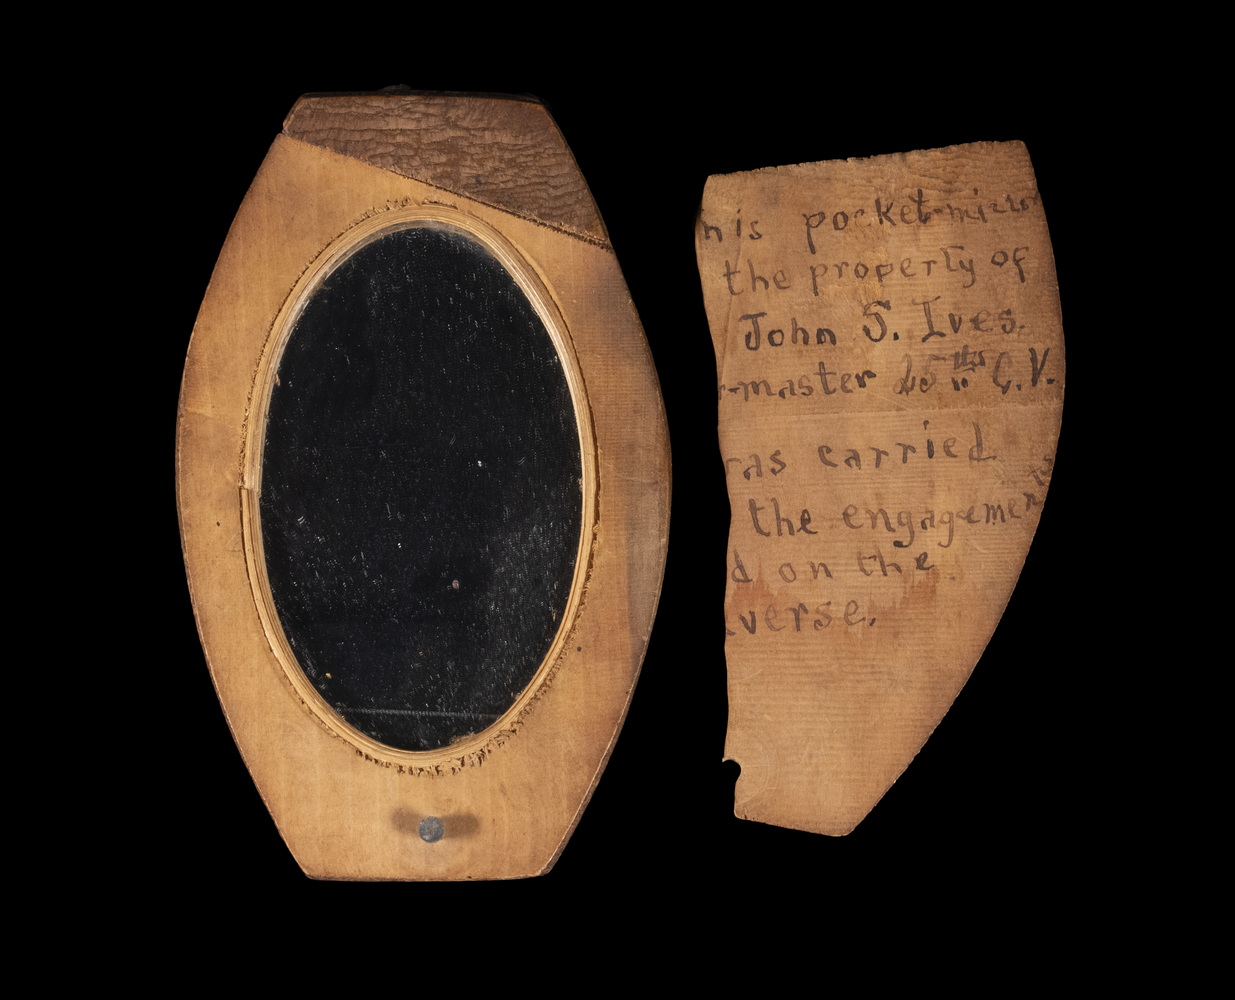 his pocket-mirror
the property of
John S. Ives.
r-master 15th C.V.
was carried
the engagements
d on the
verse.